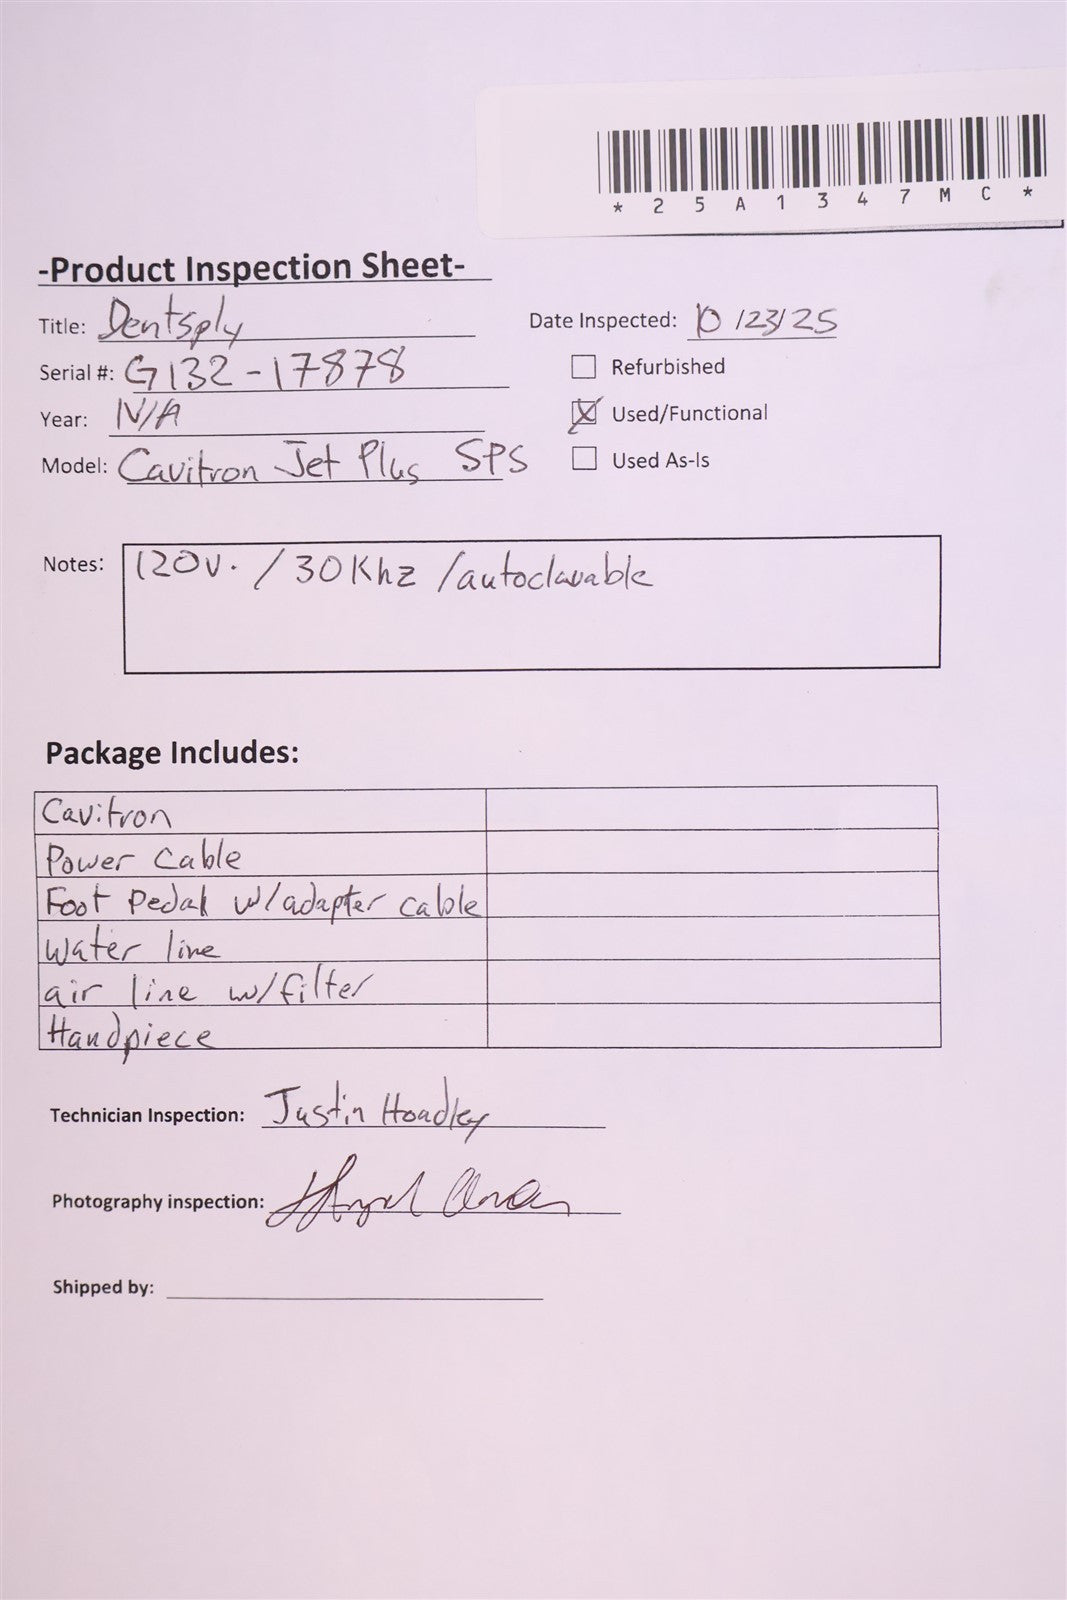 *25A1347MC*
-Product Inspection Sheet-
Title: Dentsply
Date Inspected: 10/23/25
Serial #: G132-17878
Refurbished
Year: N/A
Used/Functional
Model: Cavitron Jet Plus SPS
Used As-Is
Notes: 120v. / 30Khz /autoclavable
Package Includes:
Cavitron
Power Cable
Foot Pedal w/adapter cable
Water line
air line w/filter
Handpiece
Technician Inspection: Justin Hoadley
Photography inspection:
Shipped by: